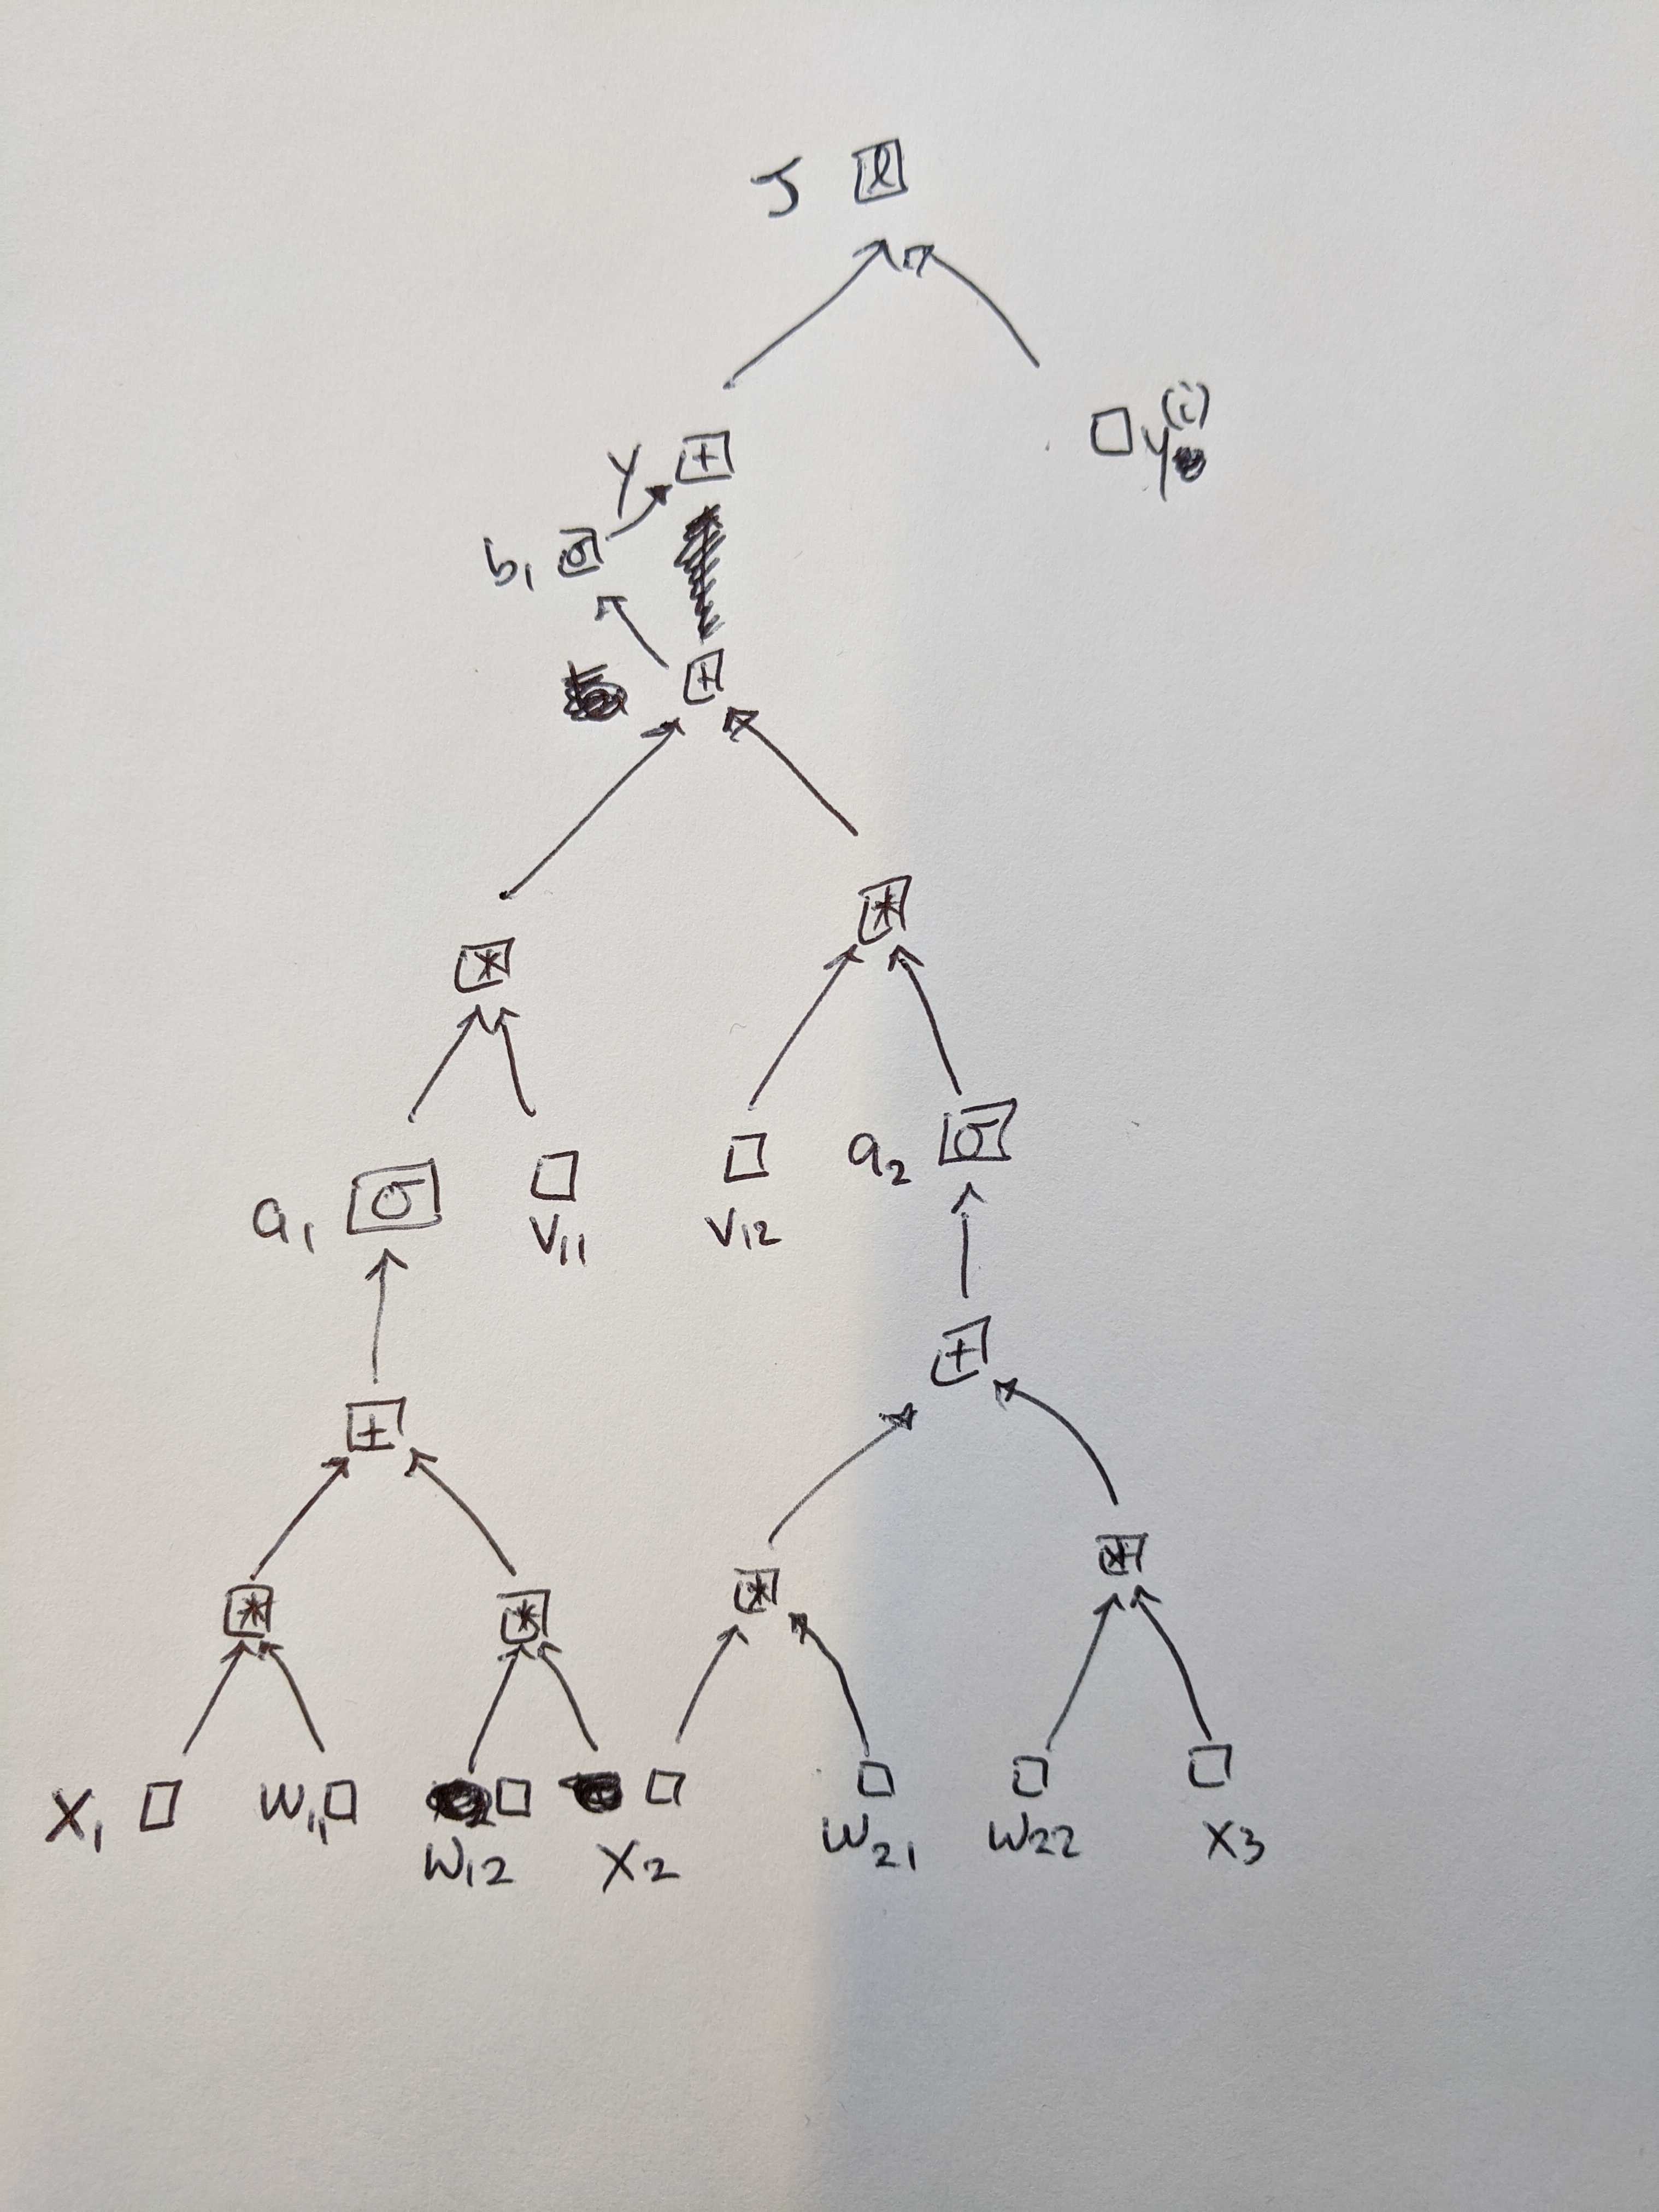 J ℓ
y + y(i)
b1 σ
+
*
*
a1 σ v11 v12 a2 σ
+
+
* * * *
x1 w11 w12 x2 w21 w22 x3